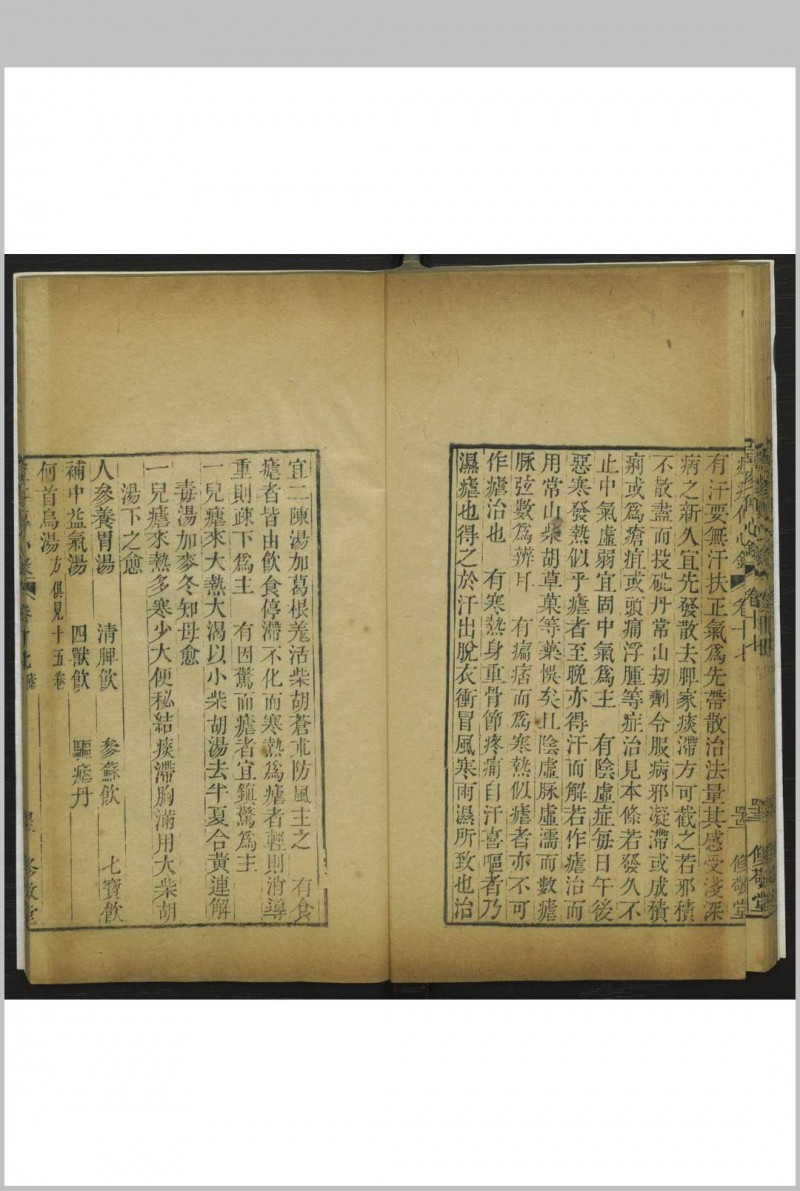 痘疹傳心錄 卷十七 修敬堂
有汗要無汗扶正氣爲先帶散治法量其感受淺深
病之新久宜先發散去脾家痰滯方可截之若邪積
不散盡而投砒丹常山刼劑令服病邪凝滯或成積
痢或爲瘡疽或頭痛浮腫等症治見本條若發久不
止中氣虛弱宜固中氣爲主 有陰虛症每日午後
惡寒發熱似乎瘧者至晚亦得汗而解若作瘧治而
用常山柴胡草菓等藥悞矣且陰虛脉虛濡而數瘧
脉弦數爲辨耳 有痛痞而爲寒熱似瘧者亦不可
作瘧治也 有寒熱身重骨節疼痛自汗喜嘔者乃
濕瘧也得之於汗出脫衣衝冒風寒雨濕所致也治
宜二陳湯加葛根羗活柴胡蒼朮防風主之 有食
瘧者皆由飲食停滯不化而寒熱爲瘧者輕則消導
重則疎下爲主 有因驚而瘧者宜鎮驚爲主
一兒瘧來大熱大渴以小柴胡湯去半夏合黃連解
毒湯加麥冬知母愈
一兒瘧來熱多寒少大便秘結痰滯胸滿用大柴胡
湯下之愈
人參養胃湯 清脾飲 參蘇飲 七寶飲
補中益氣湯 四獸飲 驅瘧丹
何首烏湯 方俱見十五卷
卷十七 修敬堂